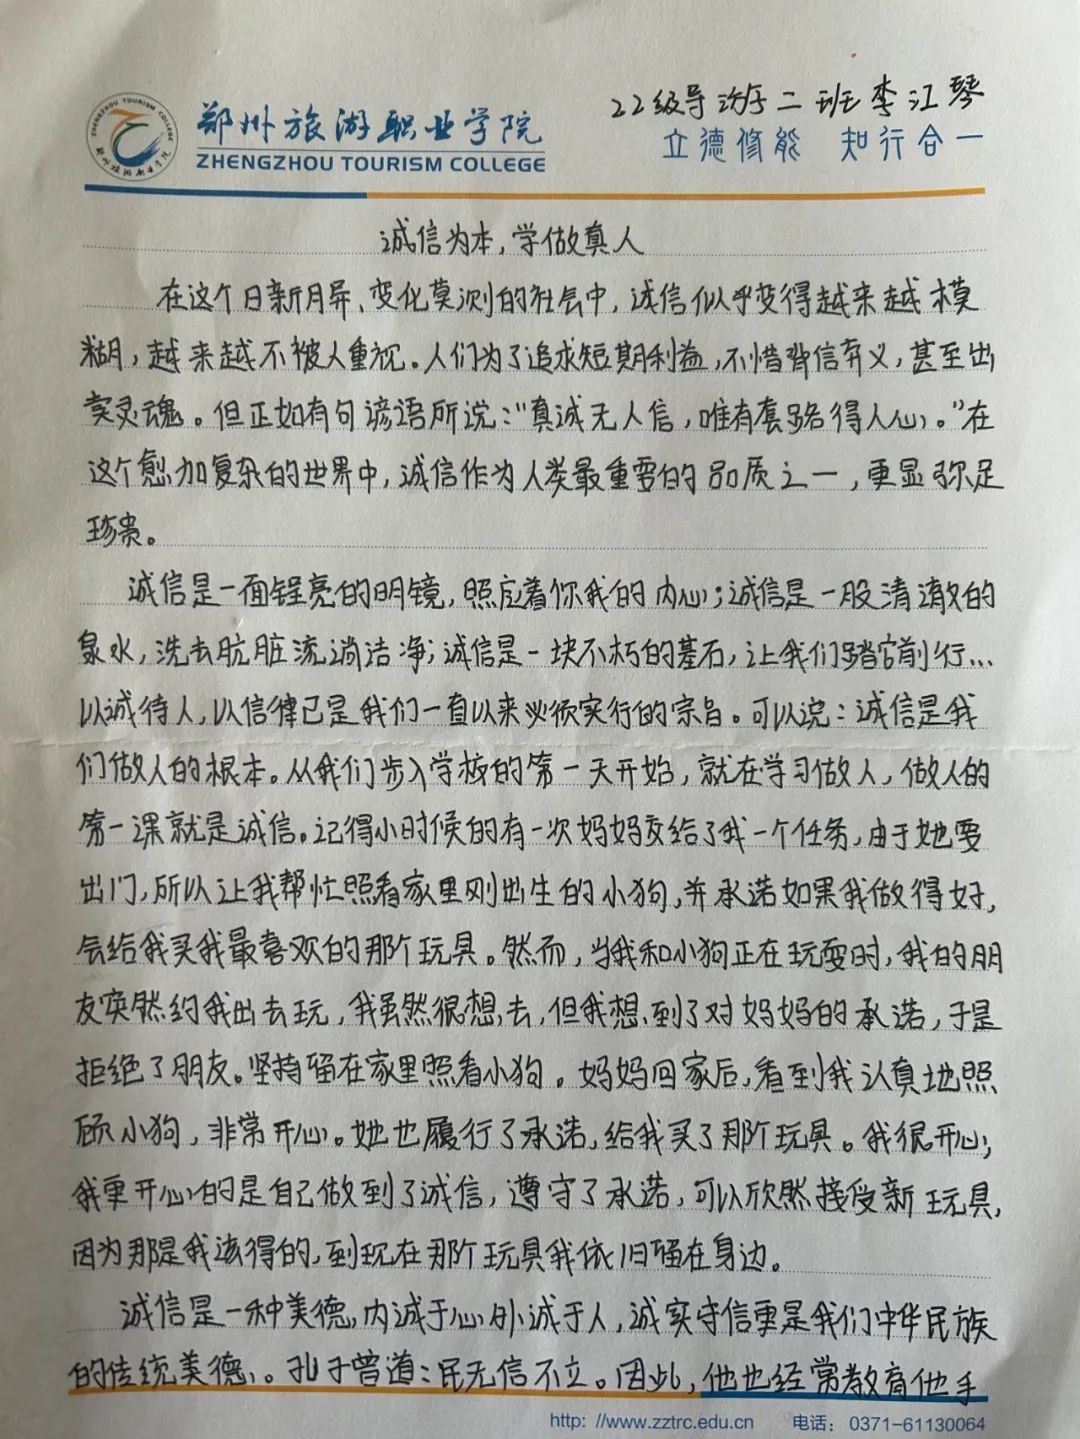 22级导游二班李江琴
郑州旅游职业学院
ZHENGZHOU TOURISM COLLEGE
立德修能 知行合一
诚信为本,学做真人
在这个日新月异、变化莫测的社会中,诚信似乎变得越来越模
糊,越来越不被人重视。人们为了追求短期利益,不惜背信弃义,甚至出
卖灵魂。但正如有句谚语所说:“真诚无人信,唯有套路得人心。”在
这个愈加复杂的世界中,诚信作为人类最重要的品质之一,更显弥足
珍贵。
诚信是一面锃亮的明镜,照应着你我的内心;诚信是一股清澈的
泉水,洗去肮脏流淌洁净;诚信是一块不朽的基石,让我们踏它前行...
以诚待人,以信律己是我们一直以来必须实行的宗旨。可以说:诚信是我
们做人的根本。从我们步入学校的第一天开始,就在学习做人,做人的
第一课就是诚信。记得小时候的有一次妈妈交给了我一个任务,由于她要
出门,所以让我帮忙照看家里刚出生的小狗,并承诺如果我做得好,
会给我买我最喜欢的那个玩具。然而,当我和小狗正在玩耍时,我的朋
友突然约我出去玩,我虽然很想去,但我想到了对妈妈的承诺,于是
拒绝了朋友。坚持留在家里照看小狗。妈妈回家后,看到我认真地照
顾小狗,非常开心。她也履行了承诺,给我买了那个玩具。我很开心,
我更开心的是自己做到了诚信,遵守了承诺,可以欣然接受新玩具,
因为那是我该得的,到现在那个玩具我依旧留在身边。
诚信是一种美德,内诚于心外诚于人,诚实守信更是我们中华民族
的传统美德。孔子曾道:民无信不立。因此,他也经常教育他手
http: //www.zztrc.edu.cn 电话: 0371-61130064